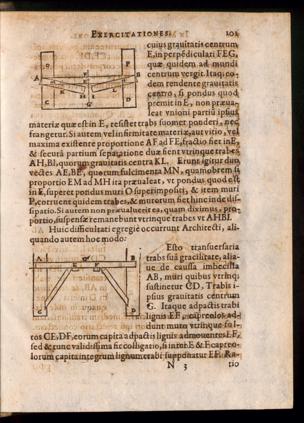 EXERCITATIONES. 101
cuius grauitatis centrum
E, in perpēdiculari FEG,
quæ quidem ad mundi
centrum vergit. Itaq; eo-
dem rendente grauitatis
centro, si pondus quod
premit in E, non præua-
leat vnioni partiū ipsius
materiæ quæ est in E, resistet trabs suomet ponderi, nec
frangetur. Si autem vel infirmitate materiæ, aut vitio, vel
maxima existente proportione AF ad FE, fractio fiet in E,
& secuta partium separatione duæ fient vtrinque trabes
AH, BI, quorum grauitatis centra KL. Erunt igitur duo
vectes AE, BE, quorum fulcimenta MN, quamobrem si
proportio EM ad MH ita præualeat, vt pondus quod est
in E, superet pondus muri O superimposit, & item muri
P, corruent quidem trabes, & murorum fiet hinc inde dis-
sipatio. Si autem non præualuerit ea, quam diximus, pro-
portio, suspensæ remanebunt vtrinque trabes vt AHBI.
Huic difficultati egregiè occurrunt Architecti, ali-
quando autem hoc modo:
Esto transuersaria
trabs suâ gracilitate, aliâ-
ue de causa imbecilla
AB, muri quibus vtrinq;
sustinetur CD, Trabis i-
psius grauitatis centrum
G. Itaque adpactis trabi
lignis EF, capreolos ad-
dunt muro vtrinque ful-
tos CE, DF, eorum capita adpactis lignis admouentes EF,
sed & tunc validissima fit colligatio, si inter E & F capreo-
lorum capita integrum lignum trabi supponatur EF. Ra-
N 3 tio